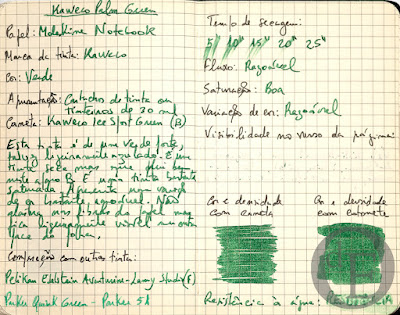 Kaweco Palm Green
Papel: Moleskine Notebook
Marca de tinta: Kaweco
Cor: Verde
Apresentação: Cartuchos de tinta ou
tinteiros de 30 ml
Caneta: Kaweco Ice Sport Green (B)
Esta tinta é de um verde forte,
talvez ligeiramente azulado. É uma
tinta seca mas num
aparo B. É uma tinta bastante
saturada. Apresenta uma variação
de cor bastante agradável. Não
mas o lado do papel
fica ligeiramente visível na outra
face da folha.
Comparação com outras tintas:
Pelikan Edelstein Aventurine - Lamy Studio (F)
Parker Quink Green - Parker 51
Tempo de secagem:
5" 10" 15" 20" 25"
Fluxo: Razoável
Saturação: Boa
Variação de cor: Razoável
Visibilidade no verso da página:
Cor e densidade
com caneta
Cor e densidade
com cotonete
Resistência à água: